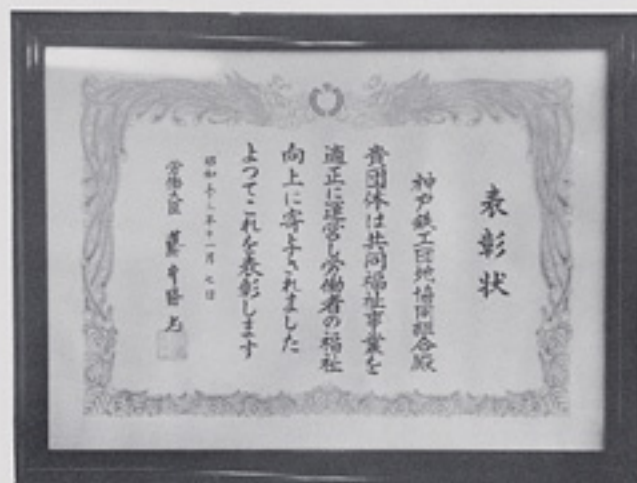 表彰状
神戸鉄工団地協同組合殿
貴団体は共同福祉事業を
適正に運営し労働者の福祉
向上に寄与されました
よつてこれを表彰します
昭和五十二年十一月七日
労働大臣